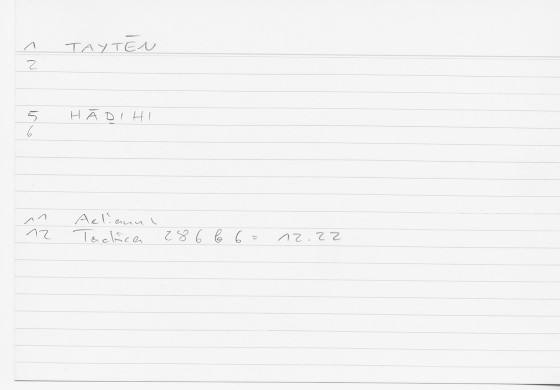 1 TAYTĒN
2
5 HĀḎIHI
6
11 Aelianus
12 Tactica 286 b 6 = 12.22